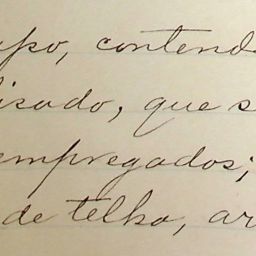 apo, contend
isado, que s
empregados;
de telha, ar